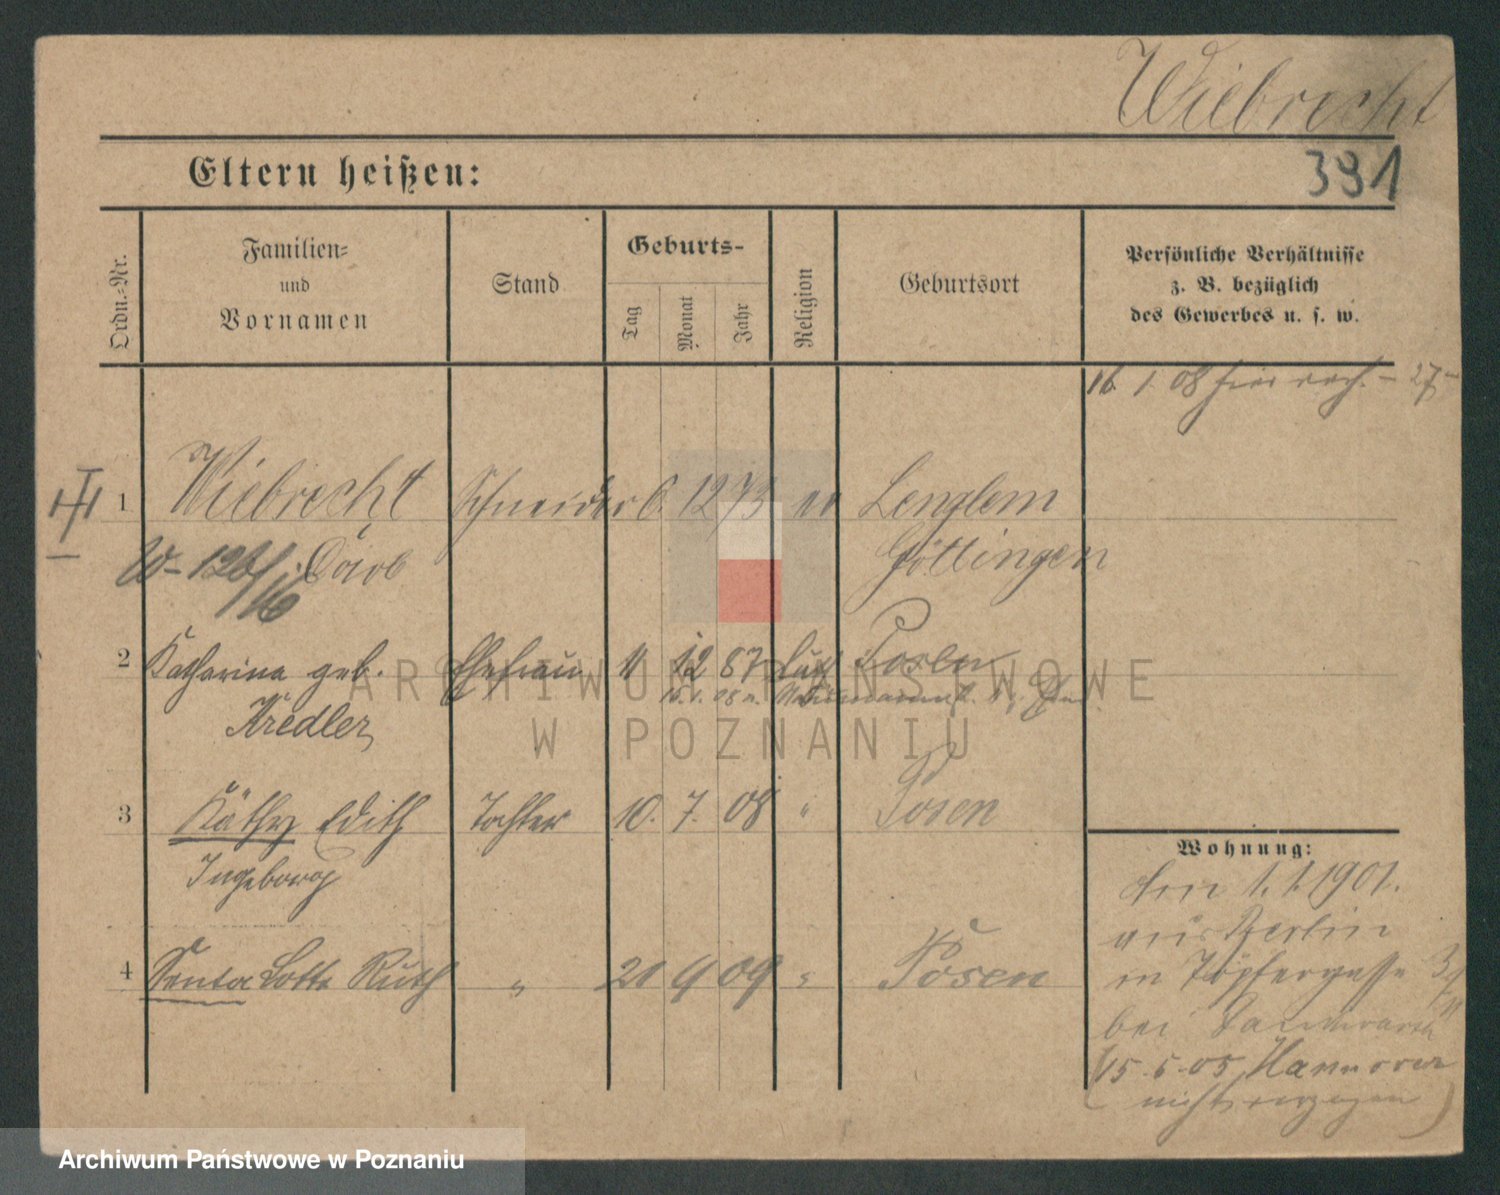 Wiebrecht
391
Eltern heißen:
Ordn.-Nr.
Familien-
und
Vornamen
Stand
Geburts-
Tag
Monat
Jahr
Religion
Geburtsort
Persönliche Verhältnisse
z. B. bezüglich
des Gewerbes u. s. w.
16. 1. 08 hier - 27-
1 Wiebrecht Schneider 6. 12 73 ev Lenglern
W-126/16 Göttingen
2 Katharina geb. Ehefrau 11 12 87 luth Posen
16.1.08
Kredler
3 Käthy Edith Tochter 10. 7. 08 " Posen
Ingeborg
4 Senta Lotte Ruth " 21 9 09 " Posen
Wohnung:
den 1.1.1901.
aus Berlin
in Töpfergasse 3
bei
(15.5.05 Hannover
nicht verzogen)
ARCHIWUM PAŃSTWOWE
W POZNANIU
Archiwum Państwowe w Poznaniu